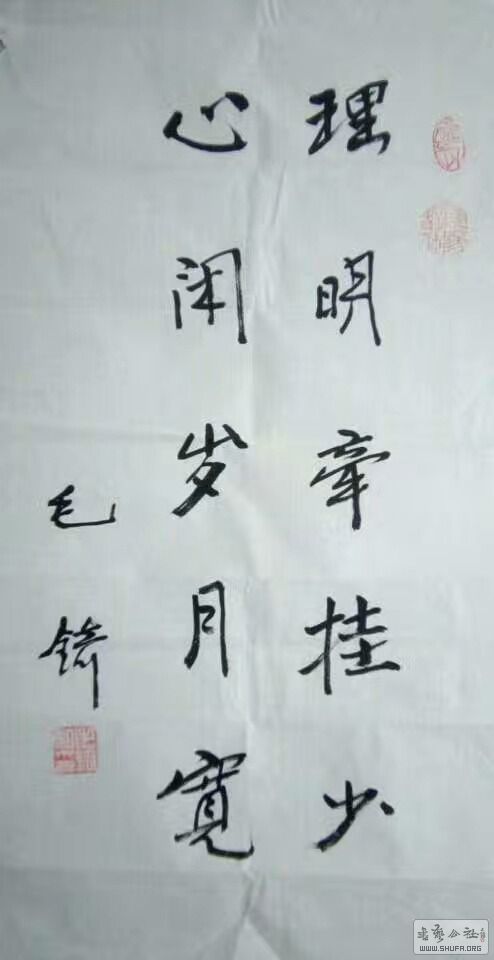 理明牵挂少
心闲岁月宽
毛锜
WWW.SHUFA.ORG